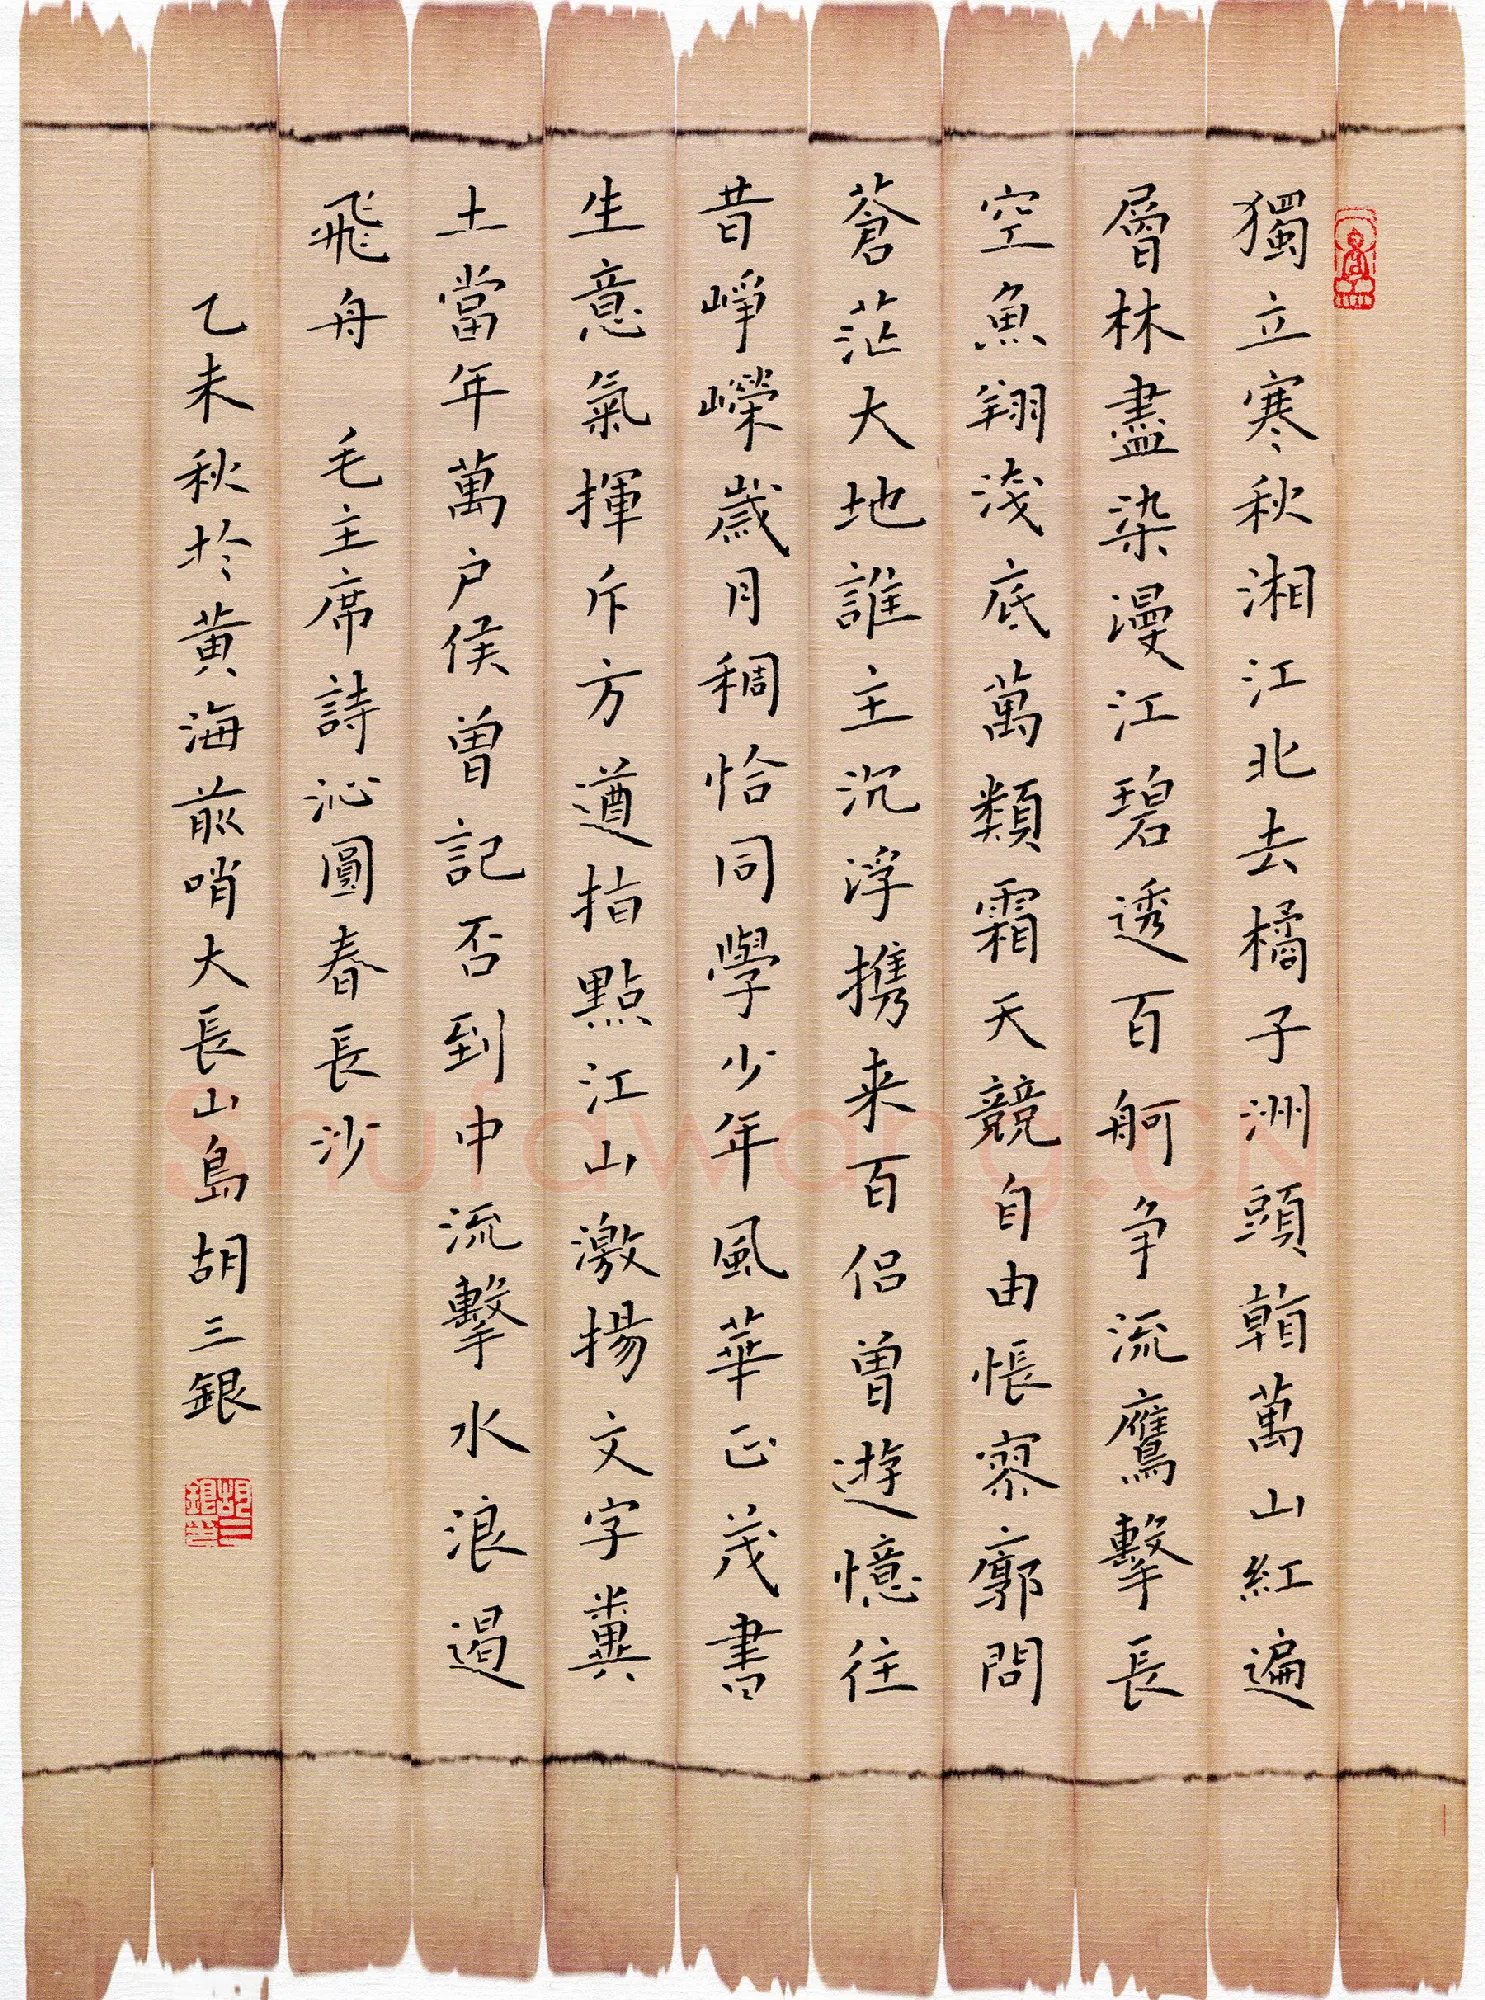 獨立寒秋湘江北去橘子洲頭看萬山紅遍
層林盡染漫江碧透百舸争流鷹擊長
空魚翔淺底萬類霜天競自由悵寥廓問
蒼茫大地誰主沉浮携来百侣曾遊憶往
昔崢嶸歲月稠恰同學少年風華正茂書
生意氣揮斥方遒指點江山激揚文字糞
土當年萬户侯曾記否到中流擊水浪遏
飛舟 毛主席詩沁圓春長沙
乙未秋於黄海前哨大長山島胡三銀
Shufawang.CN